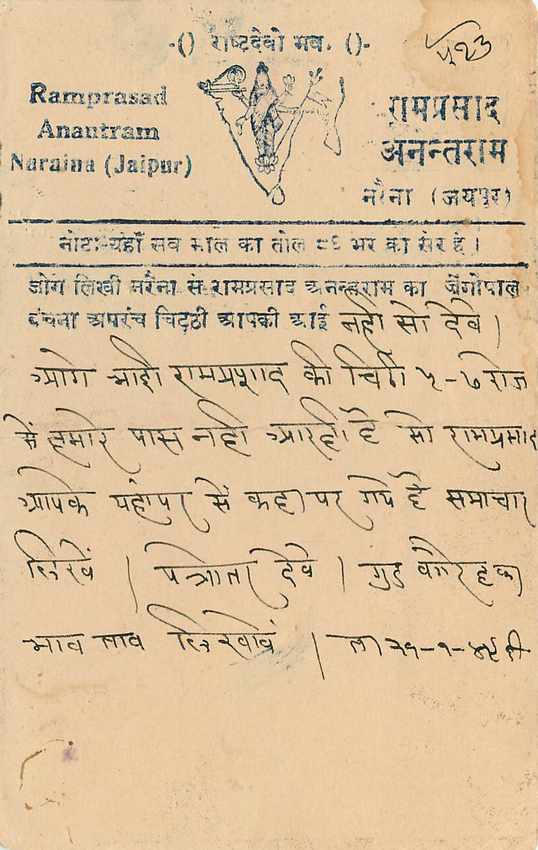 -() राष्टदेवो भव. ()-
५१३
Ramprasad
Anantram
Naraina (Jaipur)
रामप्रसाद
अनन्तराम
नरैना (जयपुर)
नोटः-यहाँ सब माल का तोल ८६ भर का सेर है।
जोग लिखी नरैना से रामप्रसाद अनन्तराम का जैगोपाल
बंचना अपरंच चिट्ठी आपकी आई नही सो देवे।
आगे भाई रामप्रशाद की चिठी ५-७ रोज
में हमारे पास नही आरही है सो रामप्रसाद
आपके यहांपर से कहा पर गये है समाचार
लिखें। पत्रोतर देवे। गुड वगेरह का
भाव ताव लिखावें। ता